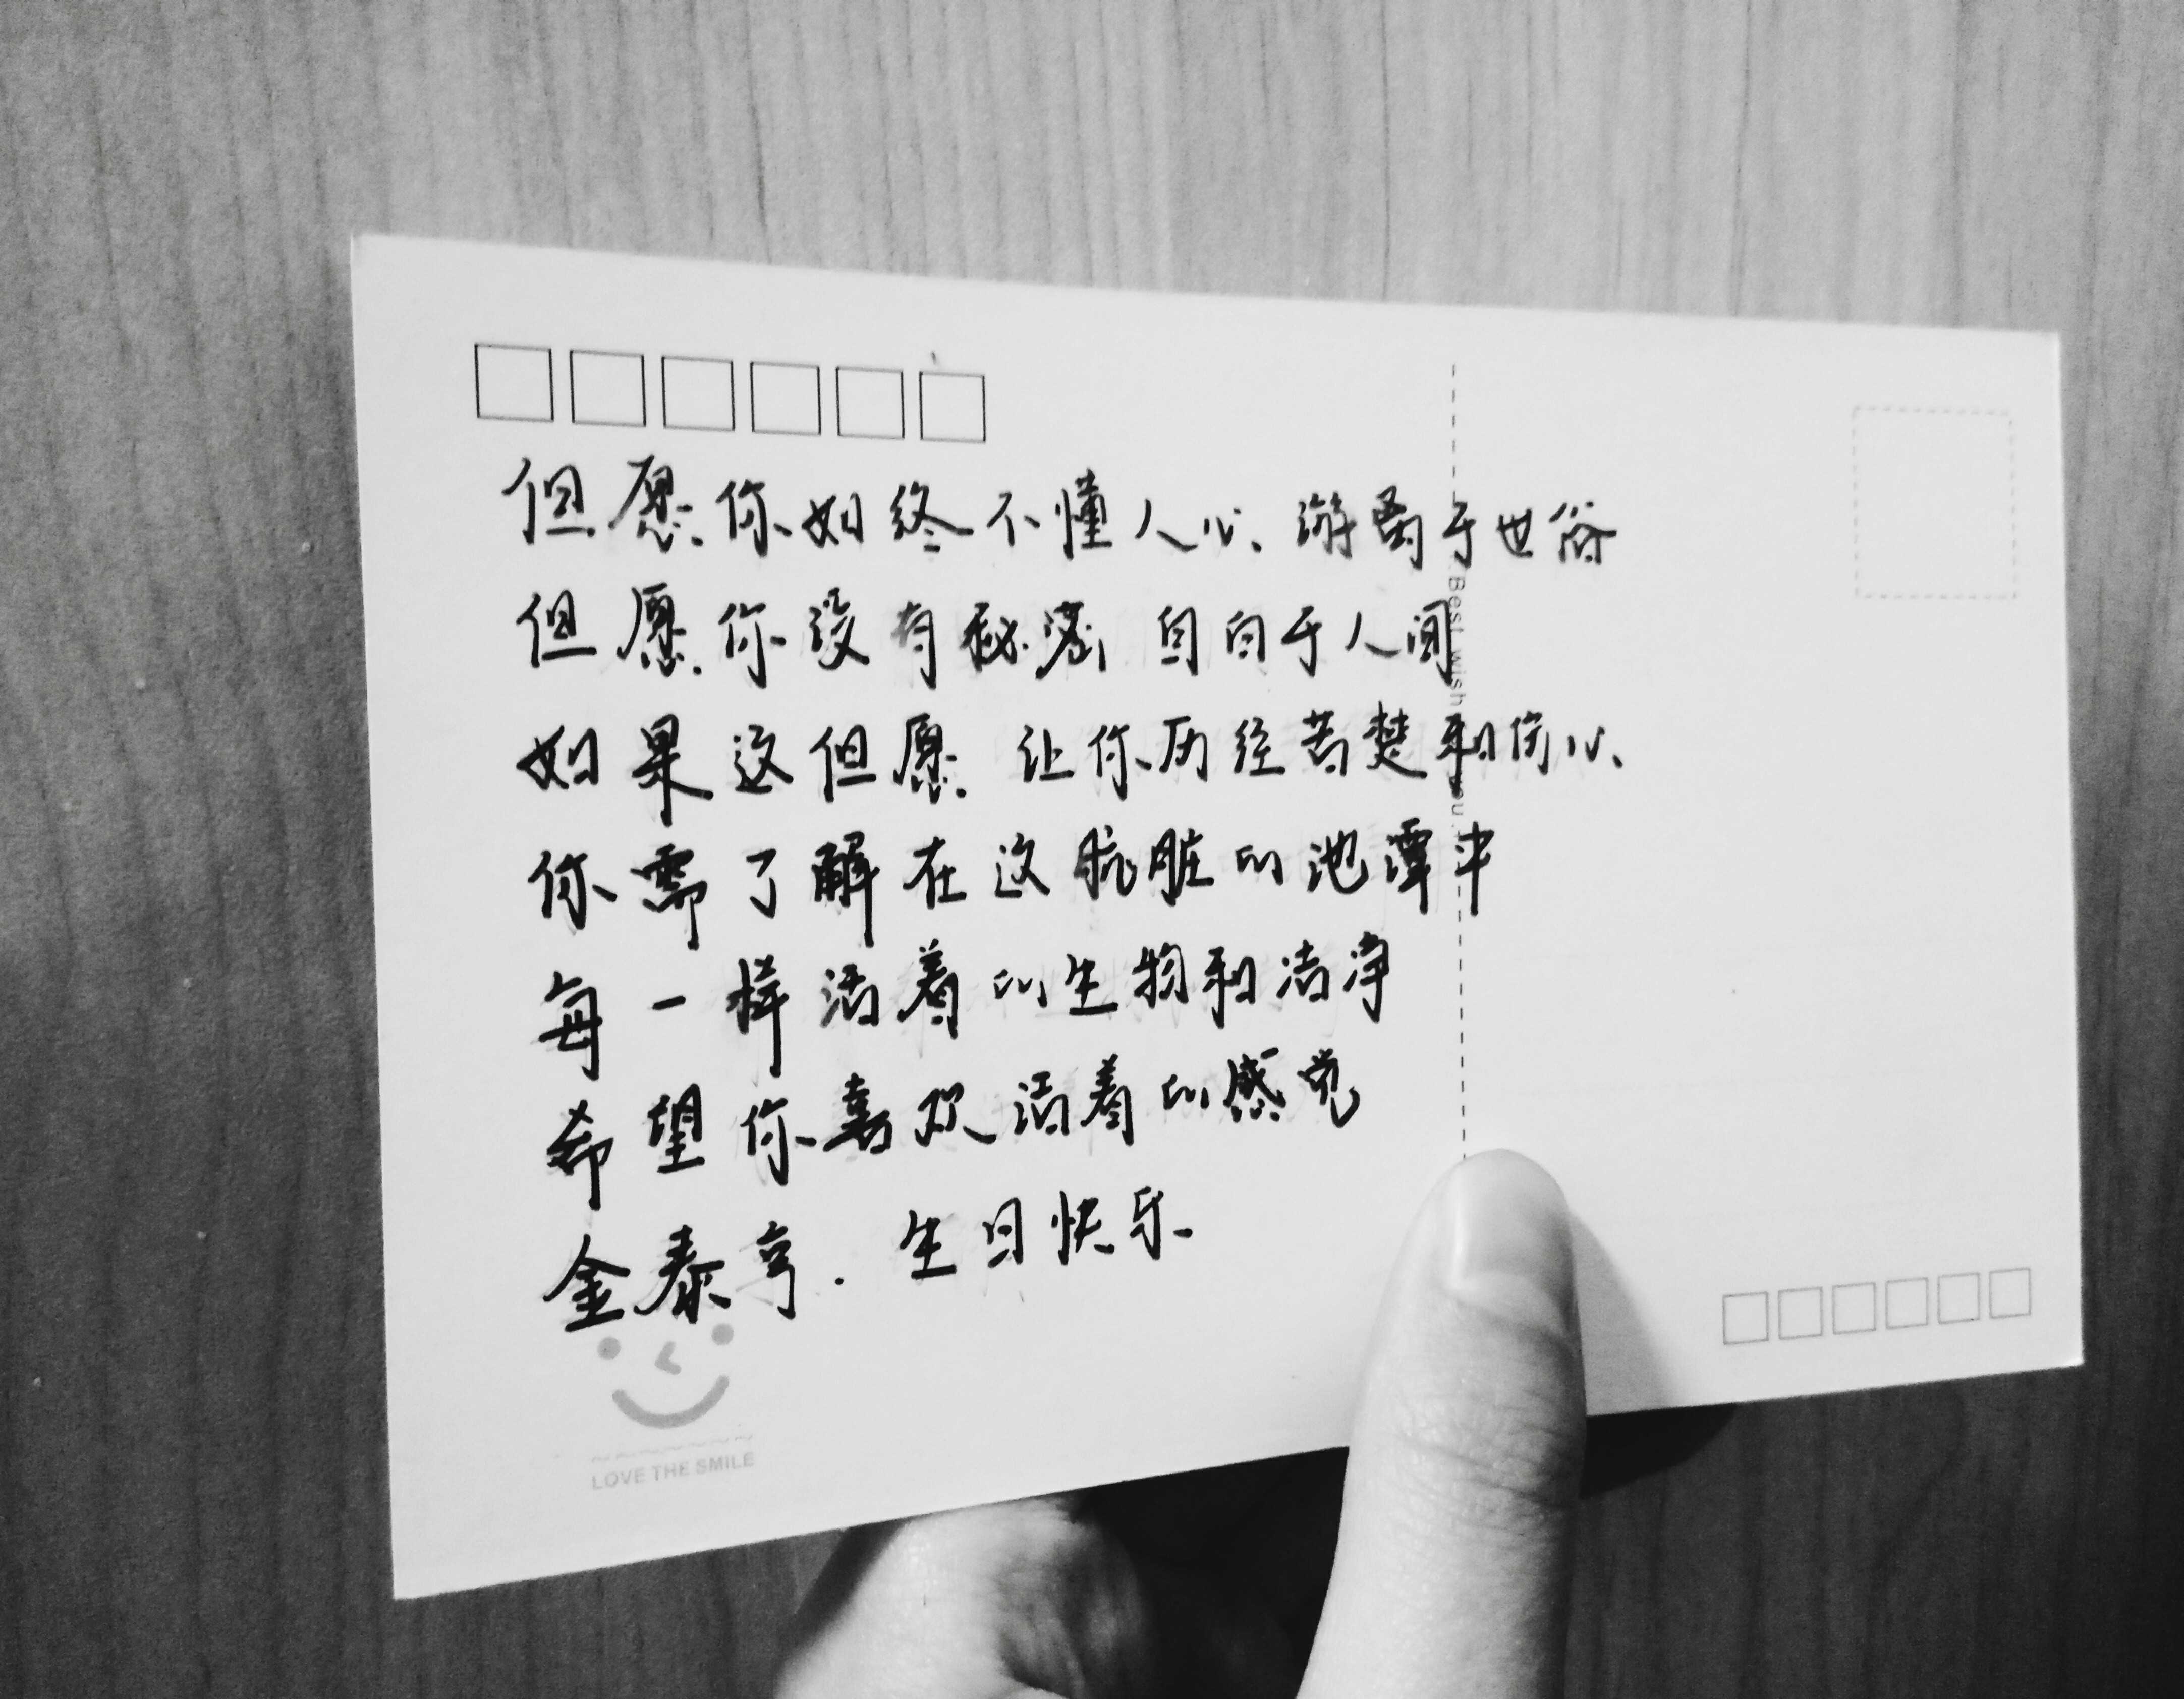 但愿你如终不懂人心 游离于世俗
但愿你没有秘密 自白于人间
如果这但愿 让你历经苦楚和伤心
你需了解在这肮脏的池潭中
每一样活着的生物和洁净
希望你喜欢活着的感觉
金泰亨. 生日快乐
Best wish you.
LOVE THE SMILE